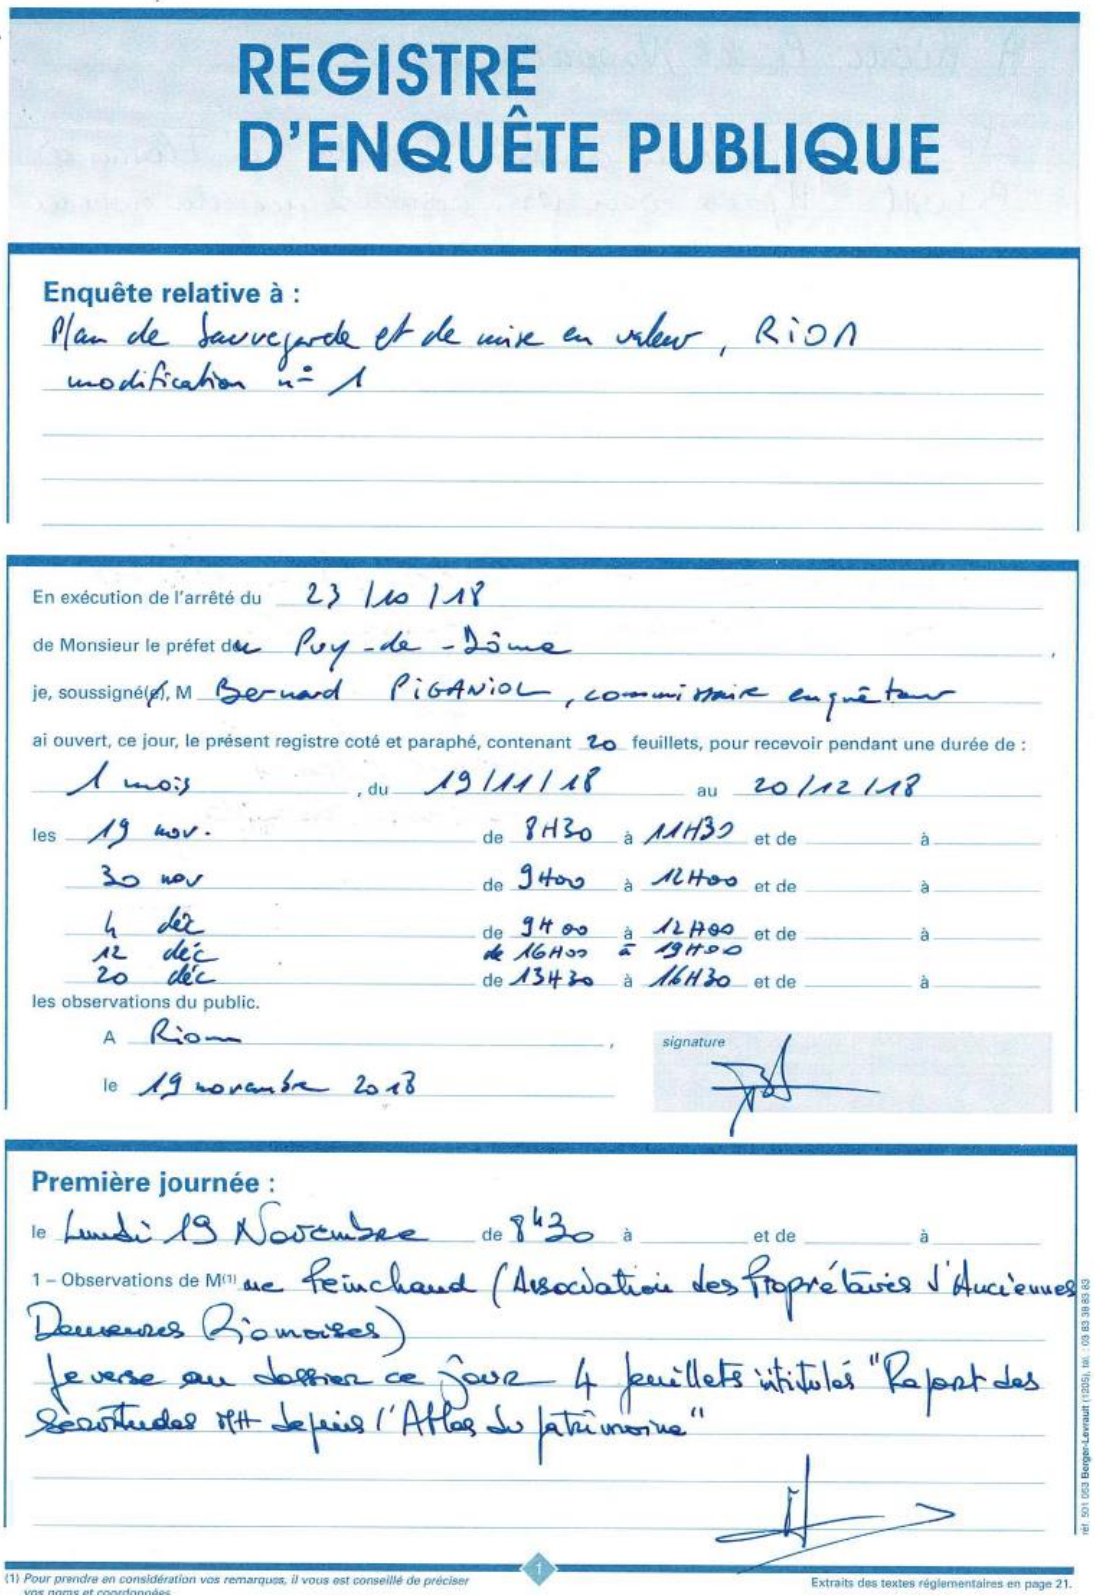 REGISTRE
D'ENQUÊTE PUBLIQUE
Enquête relative à :
Plan de Sauvegarde et de mise en valeur, RiOM
modification n° 1
En exécution de l'arrêté du 23/10/18
de Monsieur le préfet du Puy-de-Dôme,
je, soussigné(e), M Bernard PiGANiOL, commissaire enquêteur
ai ouvert, ce jour, le présent registre coté et paraphé, contenant 20 feuillets, pour recevoir pendant une durée de :
1 mois, du 19/11/18 au 20/12/18
les 19 nov. de 8H30 à 11H30 et de à
30 nov de 9H00 à 12H00 et de à
4 déc de 9H00 à 12H00 et de à
12 déc de 16H00 à 19H00
20 déc de 13H30 à 16H30 et de à
les observations du public.
A Riom,
signature
le 19 novembre 2018
Première journée :
le Lundi 19 Novembre de 8h30 à et de à
1 – Observations de M(1) me (Association des Propriétaires d'Anciennes
Demeures Riomoises)
Je verse au dossier ce jour 4 feuillets intitulés "Raport des
Servitudes MH depuis l'Atlas du patrimoine"
1
(1) Pour prendre en considération vos remarques, il vous est conseillé de préciser
vos noms et coordonnées.
Extraits des textes réglementaires en page 21.
réf. 501 053 Berger-Levrault (1205), tél. : 03 83 38 83 83